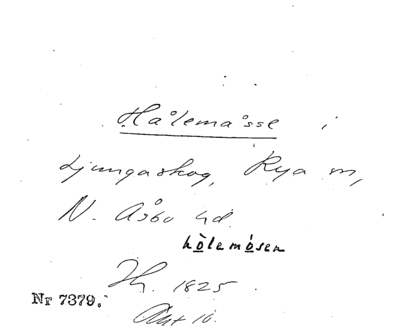 Hålemåsse i
Ljungaskog, Rya sn,
N. Åsbo hd.
hòlemòsen
Th. 1825.
Nr 7379.
Akt 10.